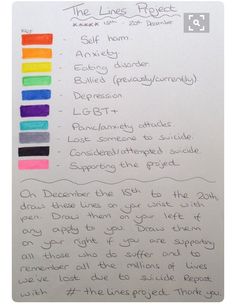 The Lines Project
***** 15th - 20th December
KEY
- Self harm.
- Anxiety
- Eating disorder
- Bullied (previously/currently)
- Depression
- LGBT+
- Panic/anxiety attacks
- Lost someone to suicide.
- Considered/attempted suicide.
- Supporting the project
On December the 15th to the 20th
draw these lines on your wrist with
pen. Draw them on your left if
any apply to you. Draw them
on your right if you are supporting
all those who do suffer and to
remember all the millions of lives
we've lost due to suicide Repost
with # thelinesproject Thank you.